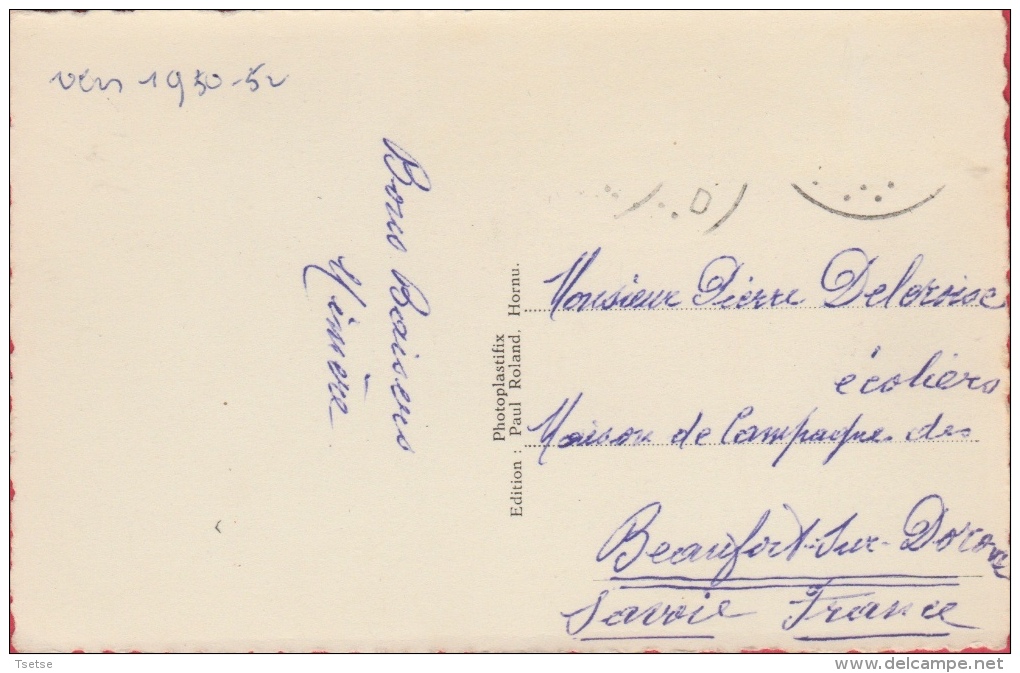 vers 1950-52
Bons Baisers
Mémère
Photoplastifix
Edition : Paul Roland, Hornu.
Monsieur Pierre Delcroise
écoliers
Maison de Campagne des
Beaufort-sur-Doron
Savoie France
Tsetse
www.delcampe.net